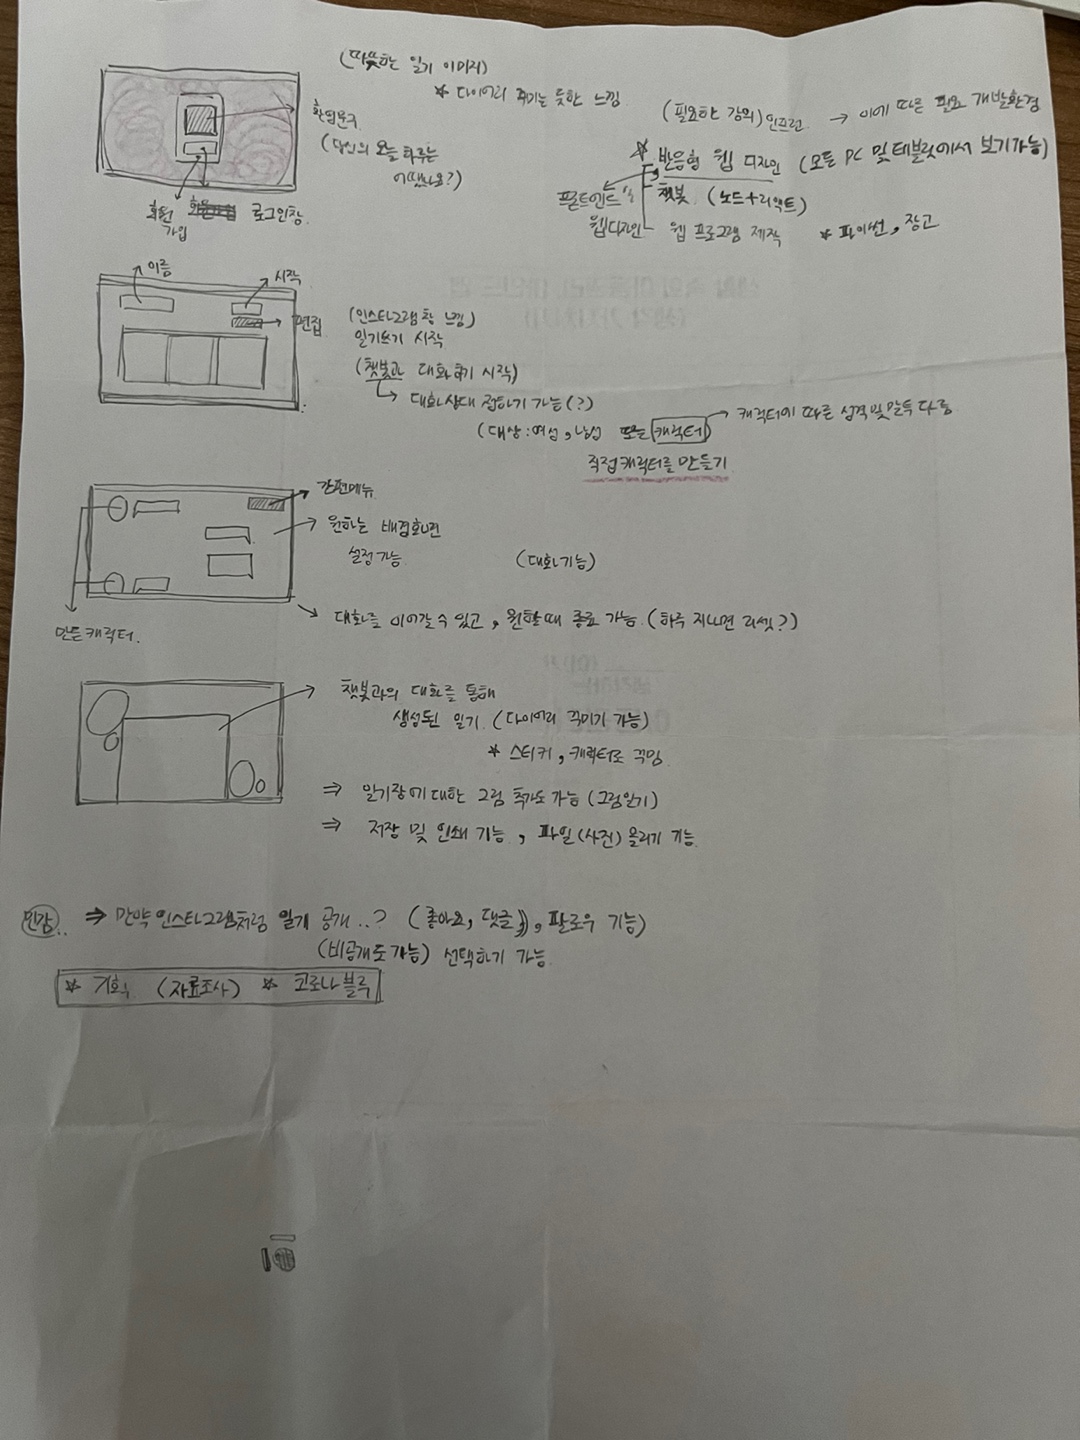 (따뜻한 일기 이미지)
* 다이어리 쥐는 듯한 느낌
환영문구
(당신의 오늘 하루는
어땠나요?)
회원
가입
로그인창.
(필요한 강의) 인프런. → 이에 따른 필요 개발환경
* 반응형 웹 디자인 (모든 PC 및 태블릿에서 보기가능)
챗봇. (노드+리액트)
프론트엔드
웹디자인
웹 프로그램 제작 * 파이썬, 장고
이름
시작
편집
(인스타그램 창 느낌)
일기쓰기 시작
(챗봇과 대화하기 시작)
→ 대화상대 정하기 가능(?)
(대상: 여성, 남성 또는 캐릭터) → 캐릭터에 따른 성격 및 말투 다름
직접 캐릭터를 만들기
간편메뉴
원하는 배경화면
설정가능
(대화기능)
→ 대화를 이어갈 수 있고, 원할때 종료 가능. (하루 지나면 리셋?)
만든 캐릭터.
챗봇과의 대화를 통해
생성된 일기. (다이어리 꾸미기 가능)
* 스티커, 캐릭터로 꾸밈
⇒ 일기장에 대한 그림 추가도 가능 (그림일기)
⇒ 저장 및 인쇄 기능, 파일(사진) 올리기 기능.
민감.. ⇒ 만약 인스타그램처럼 일기 공개..? (좋아요, 댓글, 팔로우 기능)
(비공개도 가능) 선택하기 가능.
* 기획 (자료조사) * 코로나 블루